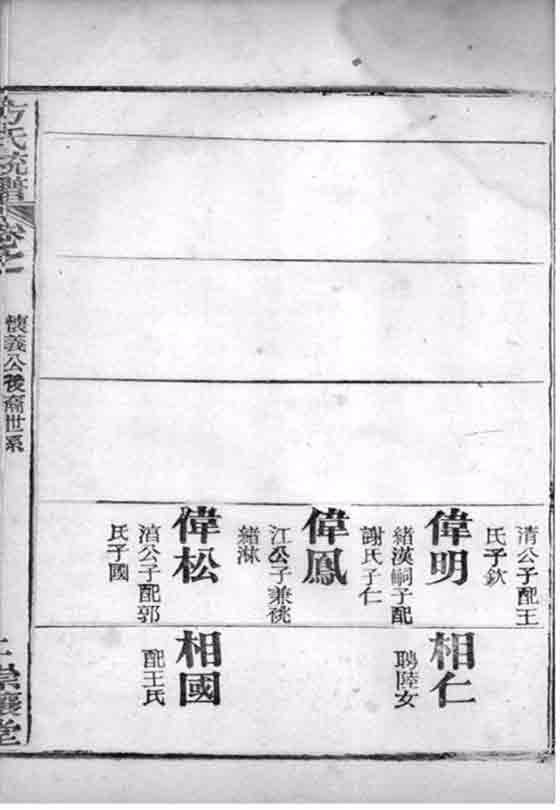 清公子配王
氏子欽
偉明
緒漢嗣子配
謝氏子仁
偉鳳
江公子兼祧
緒淋
偉松
濱公子配郭
氏子國
相仁
聘陸女
相國
配王氏
方氏統譜
卷之
懷義公後裔世系
崇讓堂